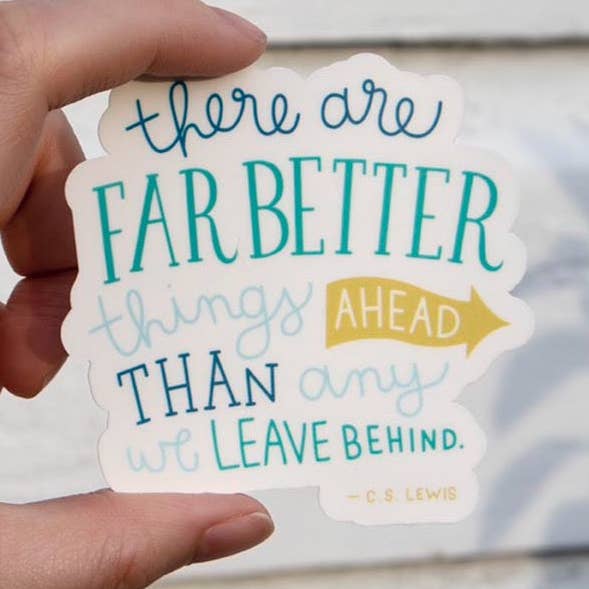 there are
FAR BETTER
things AHEAD
THAN any
we LEAVE BEHIND.
— C. S. LEWIS